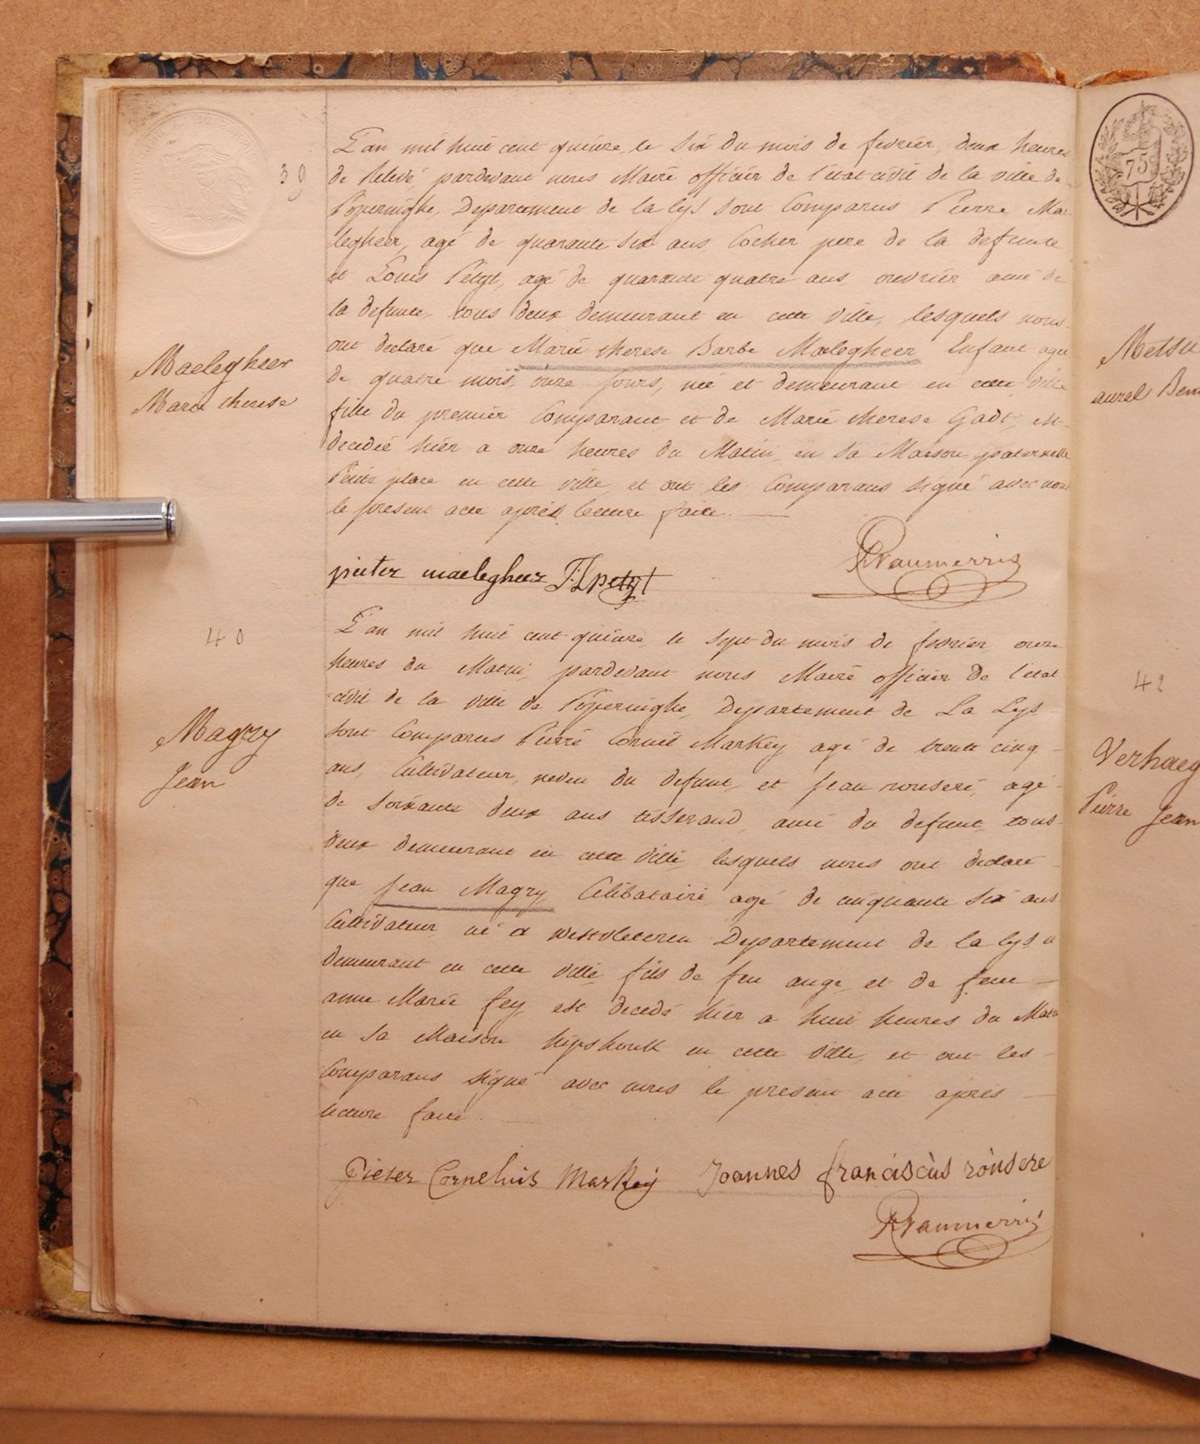 39
L'an mil huit cent quinze, le six du mois de fevrier, deux heures
de relevé pardevant nous Maire officier de l'état civil de la ville de
Poperinghe, Departement de la Lys sont Comparus Pierre Mae-
legheer, agé de quarante six ans Cocher pere de la defunte
et Louis Petyt, agé de quarante quatre ans, ouvrier ami de
la defunte, tous deux demeurant en cette ville, lesquels nous
ont declaré que Marie therese Barbe Maelegheer Enfant agée
de quatre mois, onze jours, née et demeurant en cette ville
fille du premier Comparant et de Marie therese Gadt, est
decedée hier a onze heures du Matin, en sa Maison paternelle
Petite place en cette ville, et ont les Comparans signé avec nous
le present acte après lecture faite.
Maelegheer
Marie therese
pieter maelegheer F L petyt
40
L'an mil huit cent quinze, le sept du mois de fevrier onze
heures du Matin, pardevant nous Maire officier de l'etat
civil de la ville de Poperinghe, Departement de La Lys
sont Comparus Pierre Corneil Markey agé de trente cinq
ans, Cultivateur, neveu du defunt, et Jean ronseré, agé
de soixante deux ans tisserand, ami du defunt tous
deux demeurant en cette ville, lesquels nous ont declaré
que Jean Magry, Célibataire agé de cinquante six ans
Cultivateur né a westvleteren Departement de la lys et
demeurant en cette ville, fils de feu ange, et de feue
anne Marie fey, est decedé hier a huit heures du Matin
en sa Maison hipshouk en cette ville, et ont les
Comparans signé avec nous le present acte après
lecture faite.
Magry
Jean
Pieter Cornelius Markey Joannes franciscùs rònsere
75
42
Verhaeg
Pierre Jean